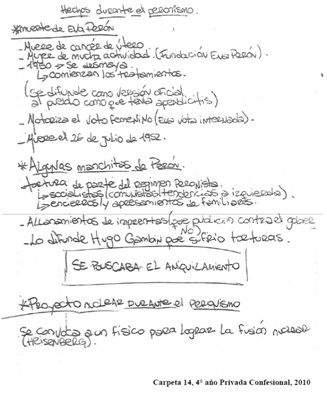 Hechos durante el peronismo.
*muerte de Eva Perón
- Muere de cancer de útero
- Mujer de mucha actividad (Fundación Eva Perón).
- 1950 → Se desmaya
↳ Comienzan los tratamientos.
(Se difunde como versión oficial
al pueblo como que tenía apendicitis)
- Notoriza el voto femenino (Eva vota internada).
- Muere el 26 de julio de 1952.
* Algunas manchitas de Perón.
tortura de parte del regimen Peronista.
↳ socialistas/comunistas (tendencias a izquierda)
↳ encierros y apresamientos de familiares.
- Allanamientos de imprentas (que publican contra el gobier
- Lo difunde Hugo Gambini que (NO) sufrio torturas.
SE BUSCABA EL ANIQUILAMIENTO
* Proyecto nuclear DURANTE el PERONISMO
Se convoca a un fisico para lograr la fusión nuclear
(HEISENBERG).
Carpeta 14, 4° año Privada Confesional, 2010